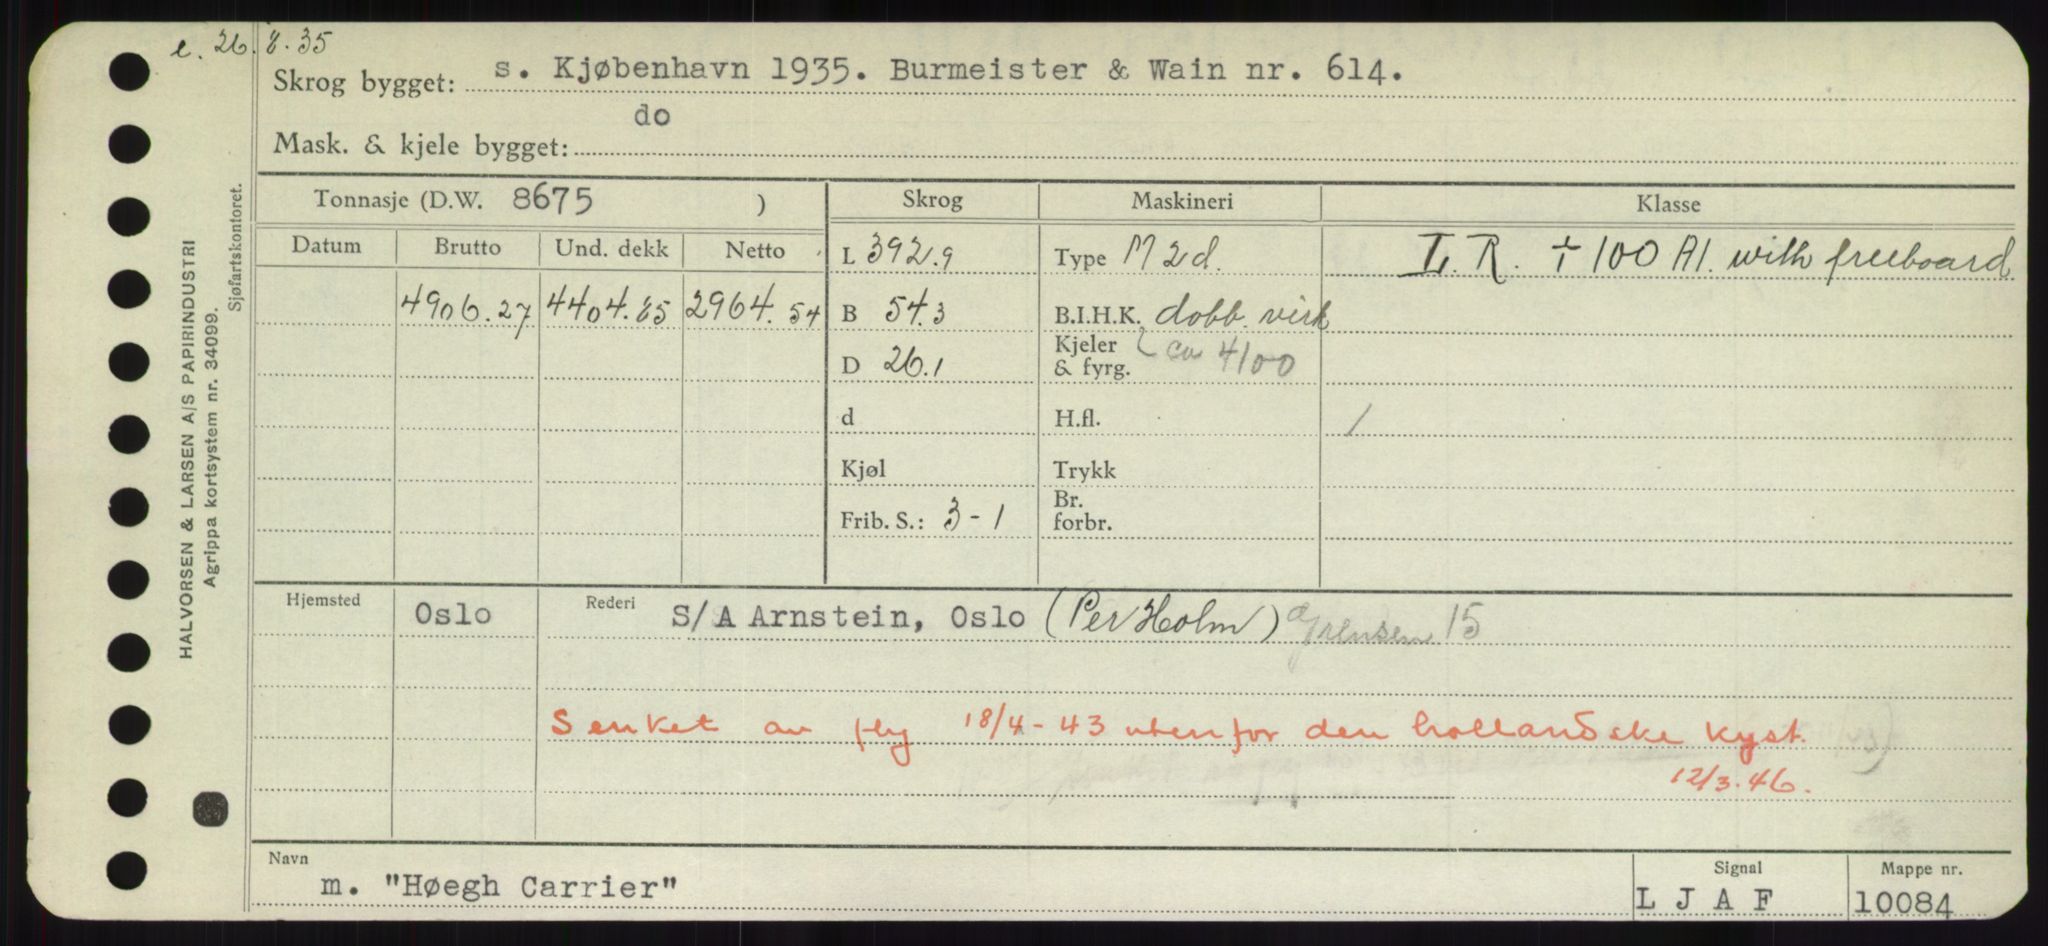 e. 26.8.35
Skrog bygget: s. Kjøbenhavn 1935. Burmeister & Wain nr. 614.
Mask. & kjele bygget: do
Tonnasje (D.W. 8675 ) Skrog Maskineri Klasse
Datum Brutto Und. dekk Netto
L 392.9 Type M 2d. L. R. + 100 A1. with freeboard
4906.27 4404.85 2964.54 B 54.3 B.I.H.K. dobb. virk
D 26.1 Kjeler & fyrg. ca 4100
d H.fl.
Kjøl Trykk
Frib. S.: 3-1 Br. forbr.
Hjemsted Oslo Rederi S/A Arnstein, Oslo (Per Holm) Grensen 15
Senket av fly 18/4-43 utenfor den hollandske kyst.
12/3.46.
Navn Signal Mappe nr.
m. "Høegh Carrier" L J A F 10084
HALVORSEN & LARSEN A/S PAPIRINDUSTRI
Agrippa kortsystem nr. 34099.
Sjøfartskontoret.